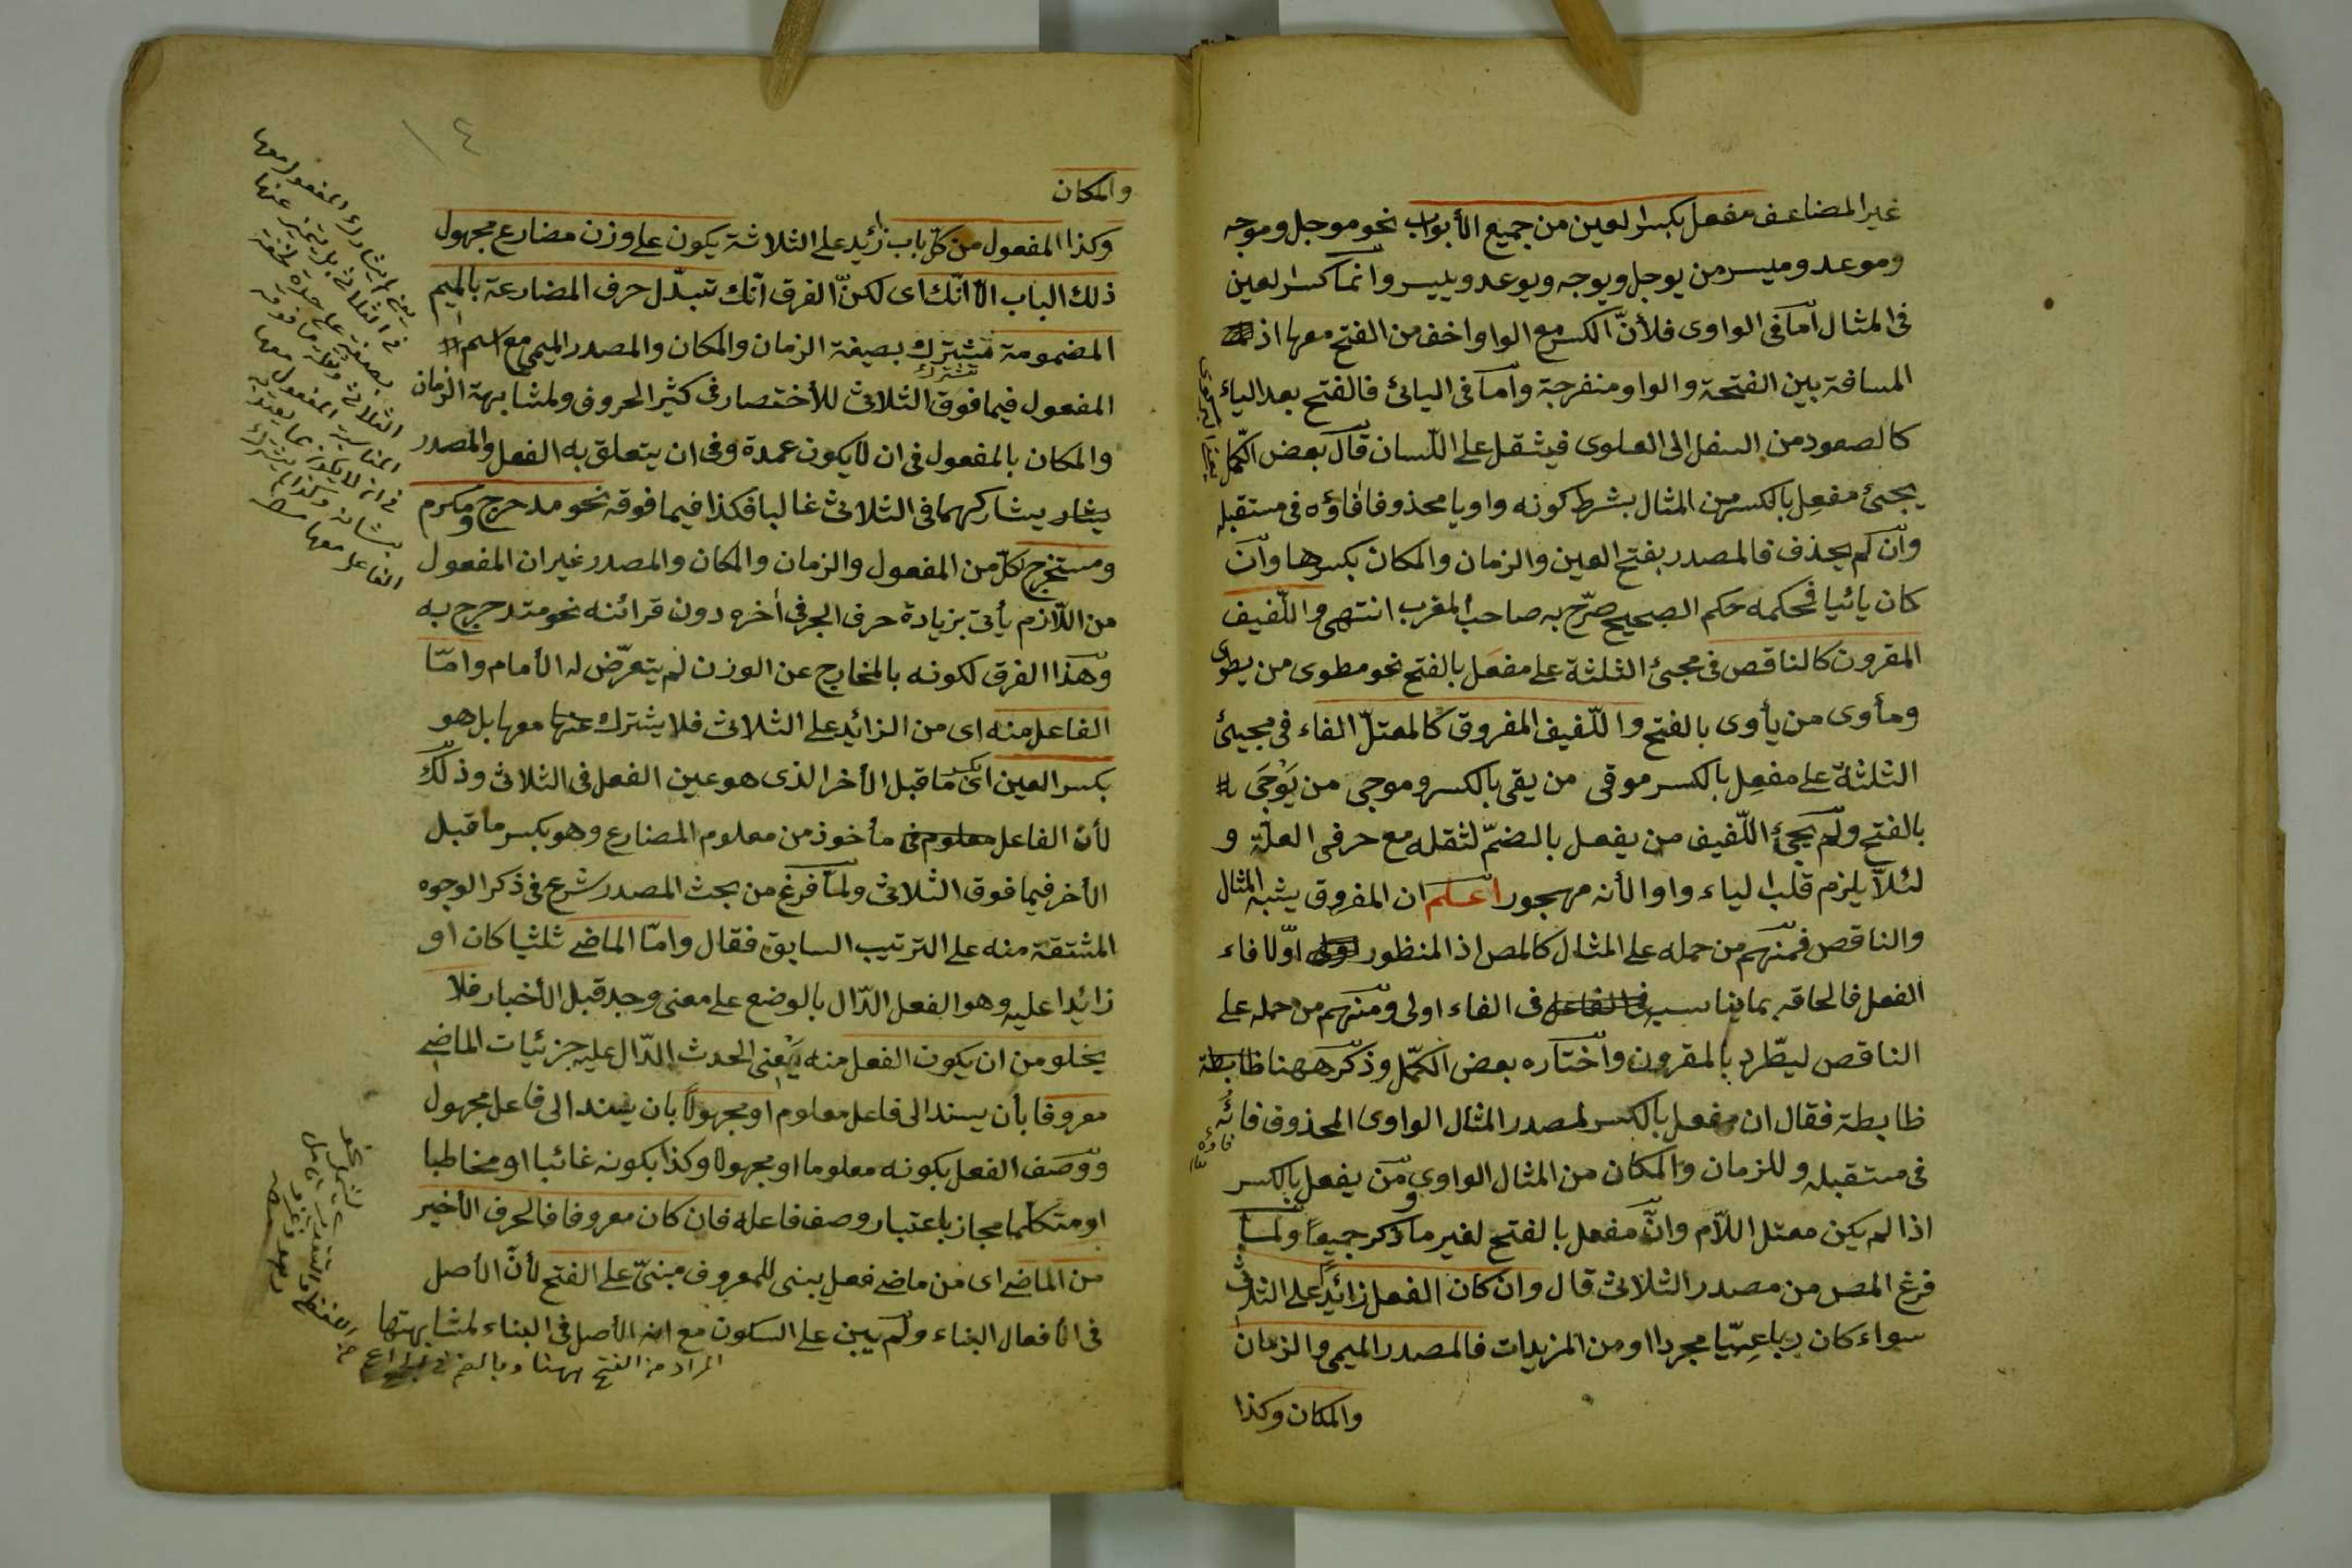 غير المضاعف مفعل بكسر العين من جميع الأبواب نحو موجل وموجه
وموعد وميسر من يوجل ويوجه ويوعد وييسر وانما كسر العين
فى المثال اما فى الواوى فلأنّ الكسر مع الواو اخف من الفتح معها اذ
المسافة بين الفتحة والواو منفرجة واما فى اليائى فالفتح بعد الياء
كالصعود من السفل الى العلوى فيثقل على اللسان قال بعض الكمّل
يجيئ مفعِل بالكسر من المثال بشرط كونه واويا محذوفا فاؤه فى مستقبله
وان لم يحذف فالمصدر بفتح العين والزمان والمكان بكسرها وان
كان يائيا فحكمه حكم الصحيح صرّح به صاحب المغرب انتهى واللّفيف
المقرون كالناقص فى مجيئ الثلثة على مفعَل بالفتح نحو مطوى من يطوى
ومأوى من يأوى بالفتح واللّفيف المفروق كالمعتلّ الفاء فى مجيئ
الثلثة على مفعِل بالكسر موقى من يقى بالكسر وموجى من يَوْجَى
بالفتح ولم يجئ اللّفيف من يفعل بالضمّ لثقله مع حرفى العلّة و
لئلاّ يلزم قلب الياء واوا لأنه مهجور اعلم ان المفروق يشبه المثال
والناقص فمنهم من حمله على المثال كالمص اذ المنظور اوّلا فاء
الفعل فالحاقه بما يناسبه فى الفاء اولى ومنهم من حمله على
الناقص ليطّرد بالمقرون واختاره بعض الكمّل وذكر ههنا ظابطة
ظابطة فقال ان مفعل بالكسر لمصدر المثال الواوى المحذوف فائه
فاؤه
فى مستقبله وللزمان والمكان من المثال الواوى ومن يفعل بالكسر
اذا لم يكن معتل اللاّم وانّ مفعل بالفتح لغير ما ذكر جميعا ولما
فرغ المص من مصدر الثلاثى قال وان كان الفعل زائدا على الثلاثى
سواء كان رباعيّا مجردا او من المزيدات فالمصدر الميمى والزمان
والمكان وكذا
١٤
والمكان
وكذا المفعول من كلّ باب زائد على الثلاثة يكون على وزن مضارع مجهول
ذلك الباب الاّ انّك اى لكنّ الفرق انّك تبدّل حرف المضارعة بالميم
المضمومة تشترك بصيغة الزمان والمكان والمصدر الميمى مع اسم
تشترك
المفعول فيما فوق الثلاثى للأختصار فى كثير الحروف ولمشابهة الزمان
والمكان بالمفعول فى ان لا يكون عمدة وفى ان يتعلق به الفعل والمصدر
يشار يشاركهما فى الثلاثى غالبا فكذا فيما فوقه نحو مدحرج ومكرم
ومستخرج لكلّ من المفعول والزمان والمكان والمصدر غير ان المفعول
من اللاّزم يأتى بزيادة حرف الجر فى أخره دون قرائنه نحو متدحرج به
وهذا الفرق لكونه بالمخارج عن الوزن لم يتعرّض له الأمام وامّا
الفاعل منه اى من الزائد على الثلاثى فلا يشترك عنها معها بل هو
بكسر العين اى بكسر ما قبل الأخر الذى هو عين الفعل فى الثلاثى وذلك
لأن الفاعل مأخوذ من معلوم المضارع وهو بكسر ما قبل
الأخر فيما فوق الثلاثى ولما فرغ من بحث المصدر شرع فى ذكر الوجوه
المشتقة منه على الترتيب السابق فقال وامّا الماضى ثلثيا كان او
زائدا عليه وهو الفعل الدّال بالوضع على معنى وجد قبل الأخبار فلا
يخلو من ان يكون الفعل منه يعنى الحدث الدّال عليه جزئيات الماضى
معروفا بأن يسند الى فاعل معلوم او مجهولا بان يسند الى فاعل مجهول
ووصف الفعل بكونه معلوما او مجهولا وكذا بكونه غائبا او مخاطبا
او متكلما مجاز باعتبار وصف فاعله فان كان معروفا فالحرف الأخير
من الماضى اى من ماضى فعل يبنى للمعروف مبنىّ على الفتح لأنّ الأصل
فى الأفعال البناء ولم يبن على السكون مع انه الأصل فى البناء لمشابهتها
المراد من الفتح ههنا